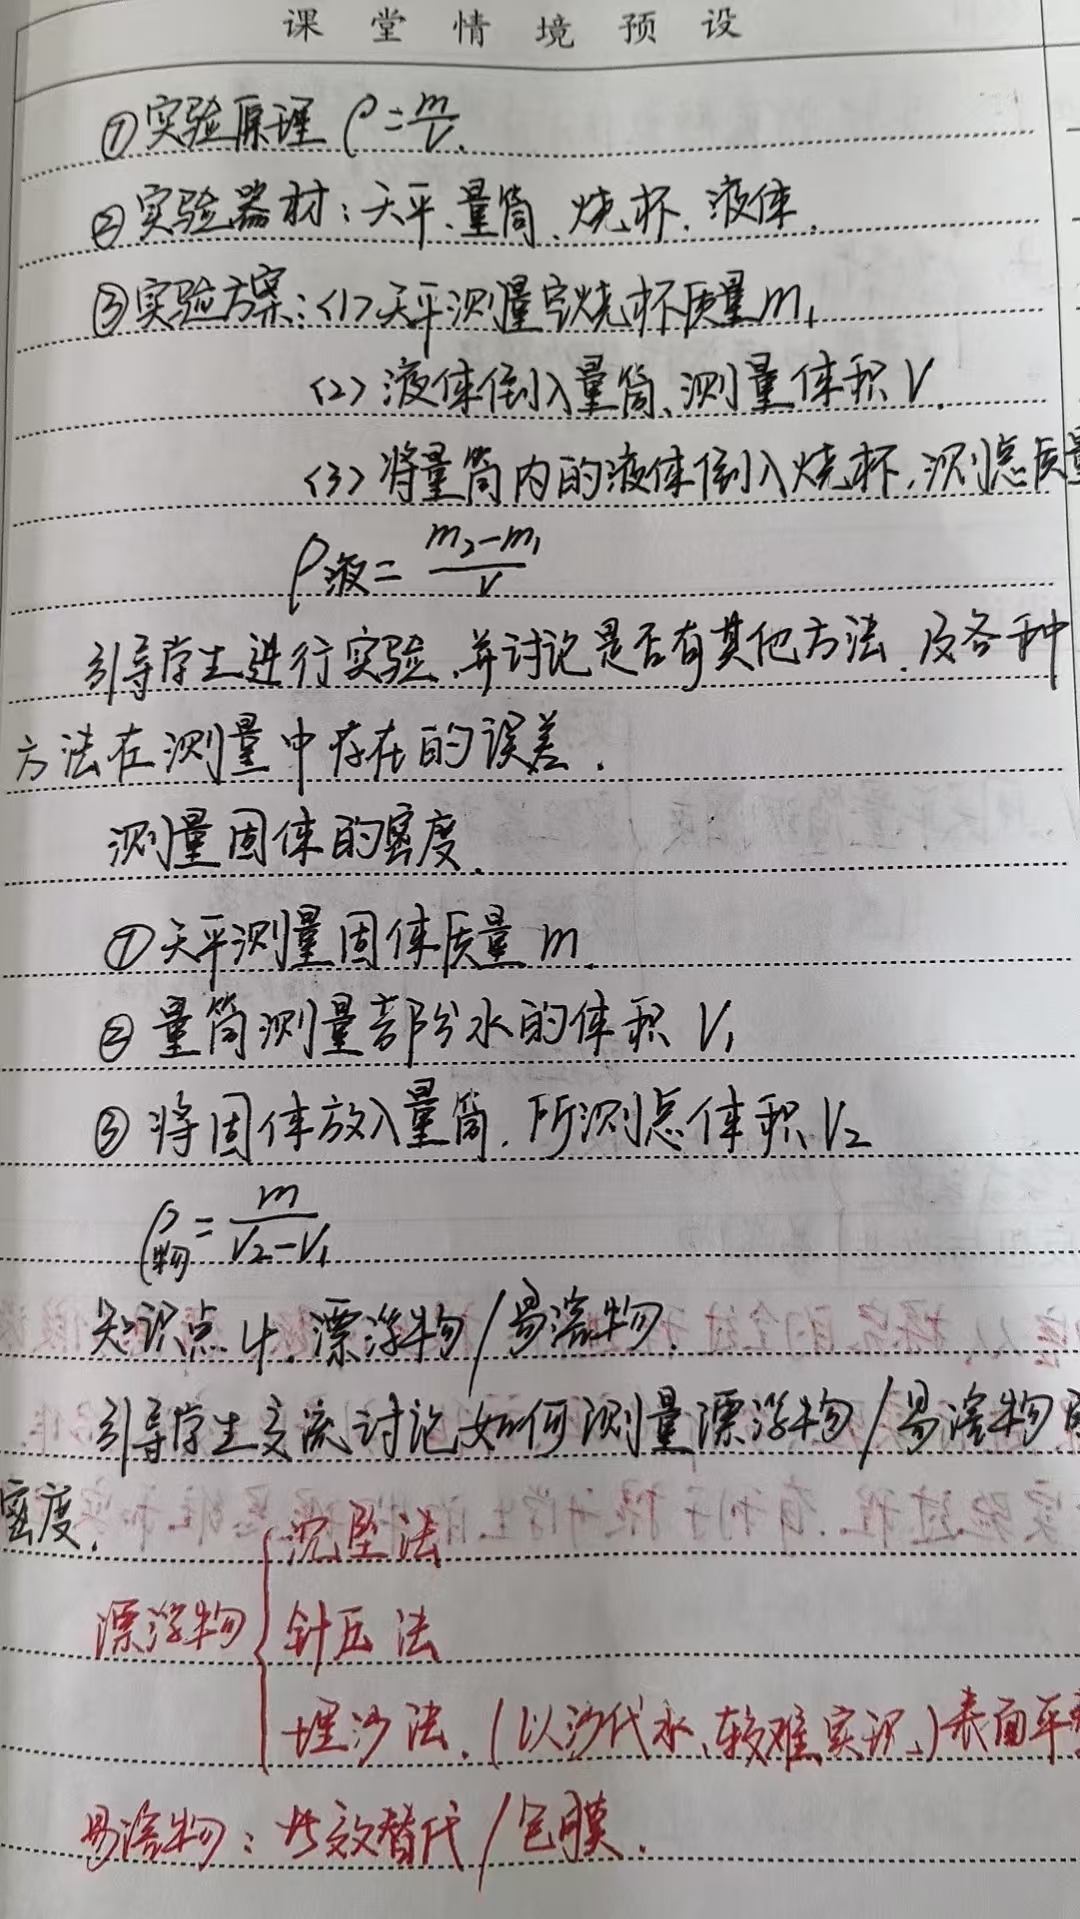 课堂情境预设
①实验原理 ρ=m/V.
②实验器材:天平、量筒、烧杯、液体.
③实验方案:<1>天平测量空烧杯质量m₁
<2>液体倒入量筒、测量体积V.
<3>将量筒内的液体倒入烧杯,测总质量
ρ液=(m₂-m₁)/V
引导学生进行实验,并讨论是否有其他方法,及各种
方法在测量中存在的误差.
测量固体的密度.
①天平测量固体质量m.
②量筒测量部分水的体积V₁
③将固体放入量筒,所测总体积V₂
ρ物=m/(V₂-V₁)
知识点4.漂浮物/易溶物.
引导学生交流讨论如何测量漂浮物/易溶物的
密度.
沉坠法
漂浮物{针压法
埋沙法.(以沙代水、较难实现.)表面平整
易溶物:等效替代/包膜.